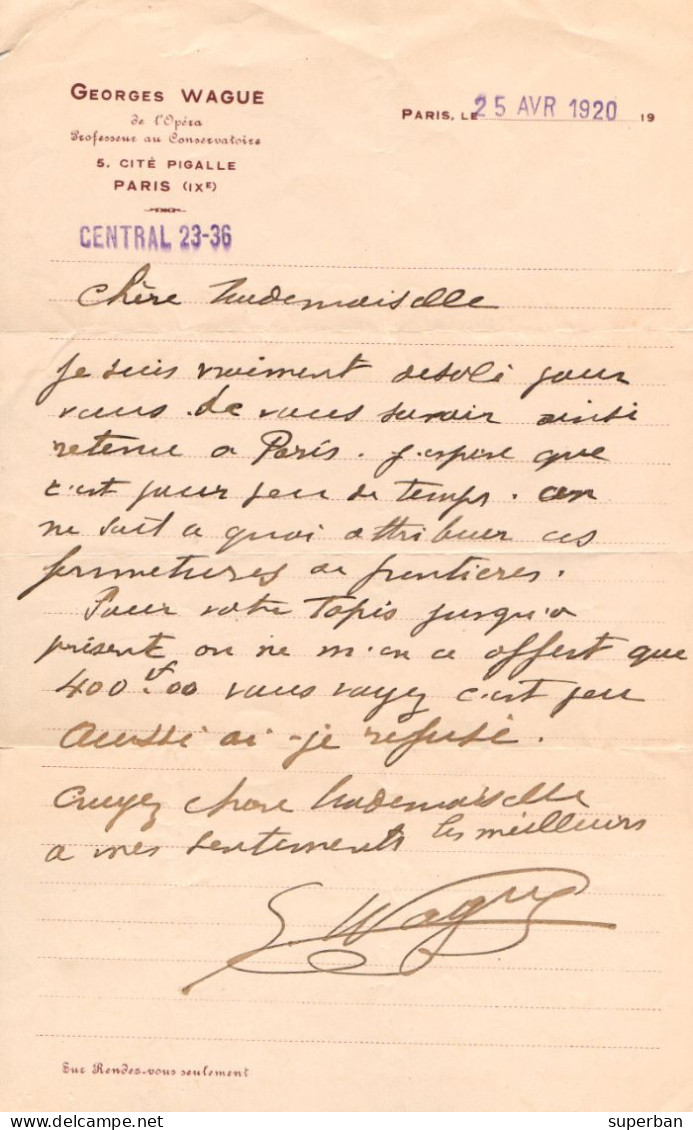 GEORGES WAGUE
de l'Opéra
Professeur au Conservatoire
5. CITÉ PIGALLE
PARIS (IXE)
CENTRAL 23-36
PARIS, LE 25 AVR 1920 19
Chère Mademoiselle
Je suis vraiment désolé pour
vous de vous savoir ainsi
retenue a Paris. J'espère que
c'est pour peu de temps. on
ne sait a quoi attribuer ces
fermetures de frontieres.
Pour votre Tapis jusqu'a
présent on ne m'en a offert que
400f.00 vous voyez c'est peu
Aussi ai-je refusé.
Croyez chère Mademoiselle
a mes sentiments les meilleurs
G. Wague
Sur Rendez-vous seulement
delcampe.net
superban